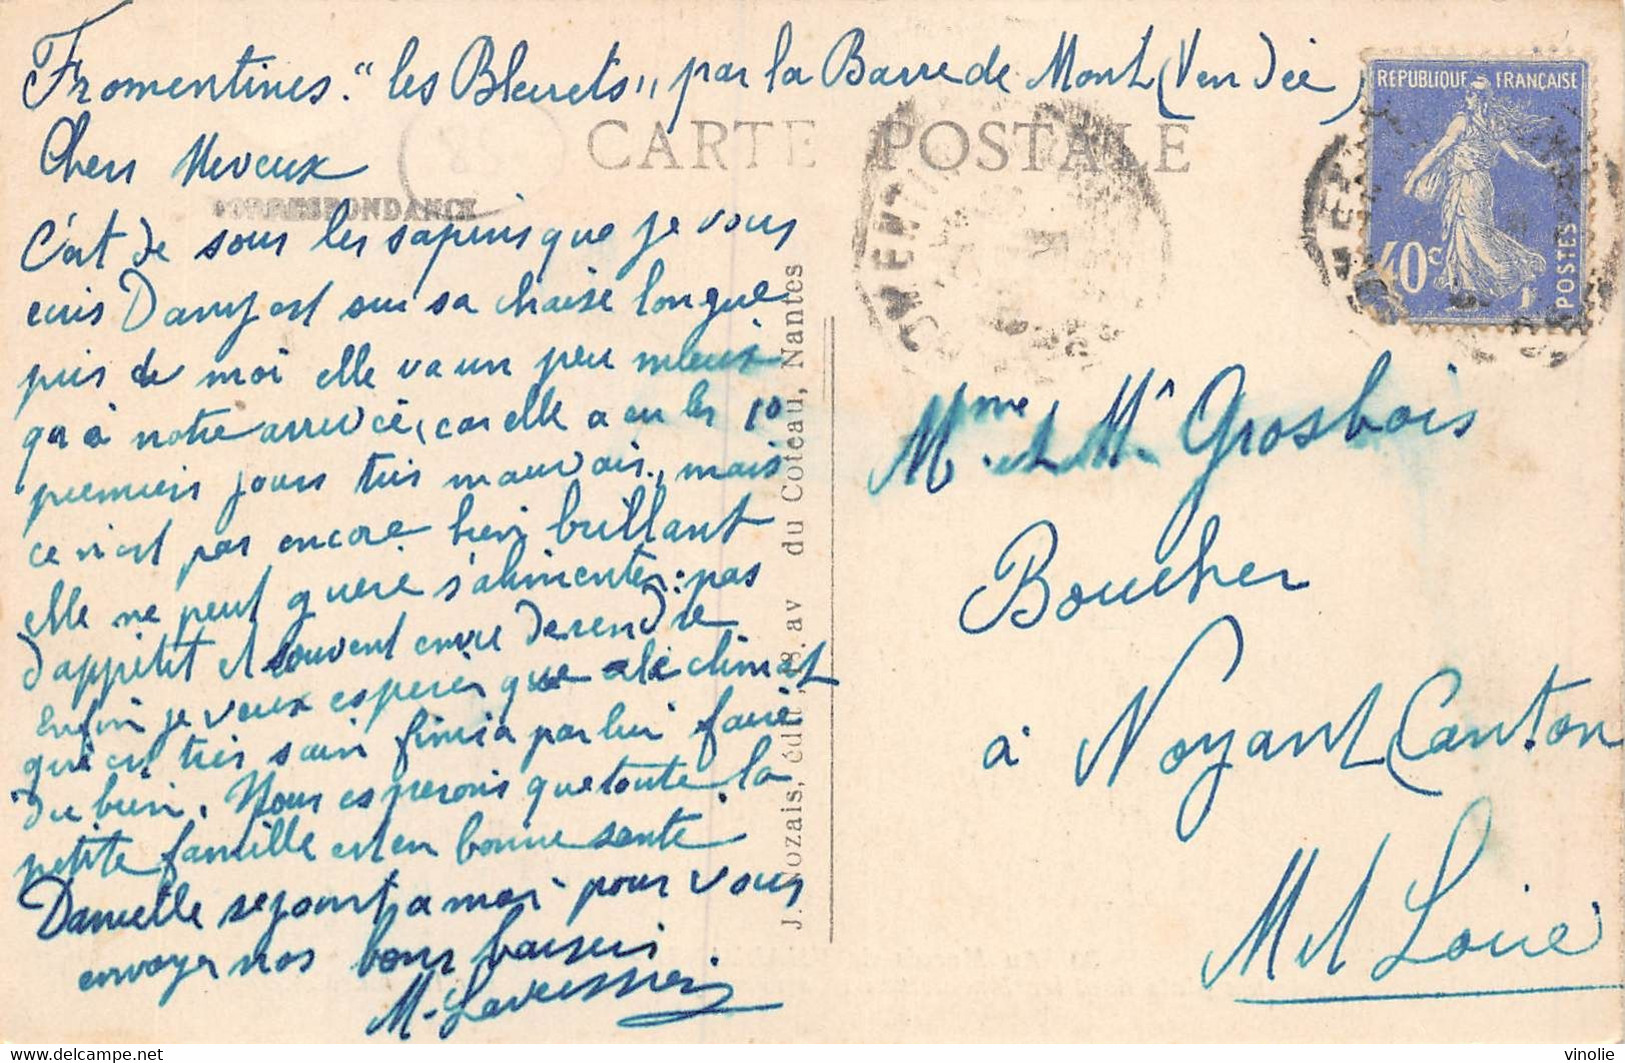 Fromentines. "les Bleuets" par la Barre de Mont (Vendée)
CARTE POSTALE
Chers Neveux
CORRESPONDANCE
C'est de sous les sapins que je vous
cris Dany est sur sa chaise longue
près de moi elle va un peu mieux
qu'à notre arrivée, car elle a eu les 10
premiers jours très mauvais, mais
ce n'est pas encore bien brillant
elle ne peut guère s'alimenter: pas
d'appétit et souvent envie de rendre
Enfin je veux espérer que le climat
qui est très sain finira par lui faire
du bien. Nous espérons que toute la
petite famille est en bonne santé
Danielle se joint a moi pour vous
envoyer nos bons baisers
M.
J. Nozais, édit., 8. av du Coteau, Nantes
REPUBLIQUE FRANÇAISE
40c
POSTES
Mme et Mr Grosbois
Boucher
à Noyant (Canton
M et Loire
delcampe.net
vinolie